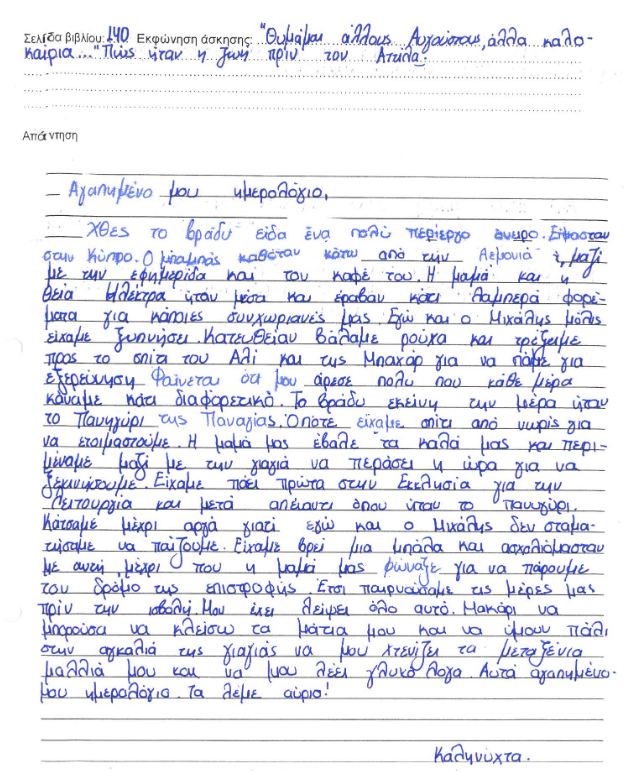 Σελίδα βιβλίου: 140 Εκφώνηση άσκησης: "Θυμάμαι άλλους Αυγούστους, άλλα καλο-
καίρια..." Πώς ήταν η ζωή πρίν τον Αττίλα.
Απάντηση
Αγαπημένο μου ημερολόγιο,
Χθες το βράδυ είδα ένα πολύ περίεργο όνειρο. Είμασταν
στην Κύπρο. Ο μπαμπάς καθόταν κάτω από την λεμονιά μαζί
με την εφημερίδα και τον καφέ του. Η μαμά και η
θεία Ηλέκτρα ήταν μέσα και έραβαν κάτι λαμπερά φορέ-
ματα για κάποιες συγχωριανές μας. Εγώ και ο Μιχάλης μόλις
είχαμε ξυπνήσει. Κατευθείαν βάλαμε ρούχα και τρέξαμε
προς το σπίτι του Αλί και της Μπαχάρ για να πάμε για
εξερεύνηση. Φαίνεται ότι μου άρεσε πολύ που κάθε μέρα
κάναμε κάτι διαφορετικό. Το βράδυ εκείνη την μέρα ήταν
το Πανηγύρι της Παναγίας. Οπότε είχαμε σπίτι από νωρίς για
να ετοιμαστούμε. Η μαμά μας έβαλε τα καλά μας και περι-
μέναμε μαζί με την γιαγιά να περάσει η ώρα για να
ξεκινήσουμε. Είχαμε πάει πρώτα στην Εκκλησία για την
Λειτουργία και μετά απέναντι όπου ήταν το πανηγύρι.
Κάτσαμε μέχρι αργά γιατί εγώ και ο Μιχάλης δεν σταμα-
τήσαμε να παίζουμε. Είχαμε βρεί μια μπάλα και ασχολιόμασταν
με αυτή, μέχρι που η μαμά μας φώναξε για να πάρουμε
τον δρόμο της επιστροφής. Έτσι παιρνούσαμε τις μέρες μας
πρίν την ισβολή. Μου έχει λείψει όλο αυτό. Μακάρι να
μπορούσα να κλείσω τα μάτια μου και να ήμουν πάλι
στην αγκαλιά της γιαγιάς να μου χτενίζει τα μεταξένια
μαλλιά μου και να μου λέει γλυκά λόγα. Αυτά αγαπημένο
μου ημερολόγιο. Τα λέμε αύριο!
Καληνύχτα.